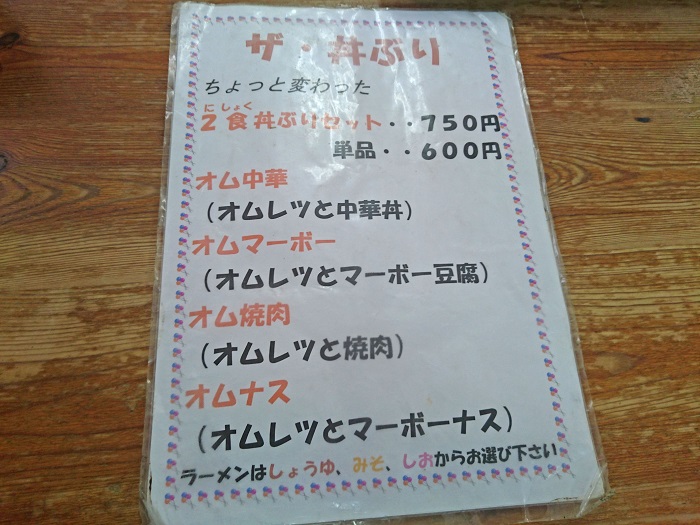 ザ・丼ぶり
ちょっと変わった
にしょく
2食丼ぶりセット・・750円
単品・・600円
オム中華
(オムレツと中華丼)
オムマーボー
(オムレツとマーボー豆腐)
オム焼肉
(オムレツと焼肉)
オムナス
(オムレツとマーボーナス)
ラーメンはしょうゆ、みそ、しおからお選び下さい